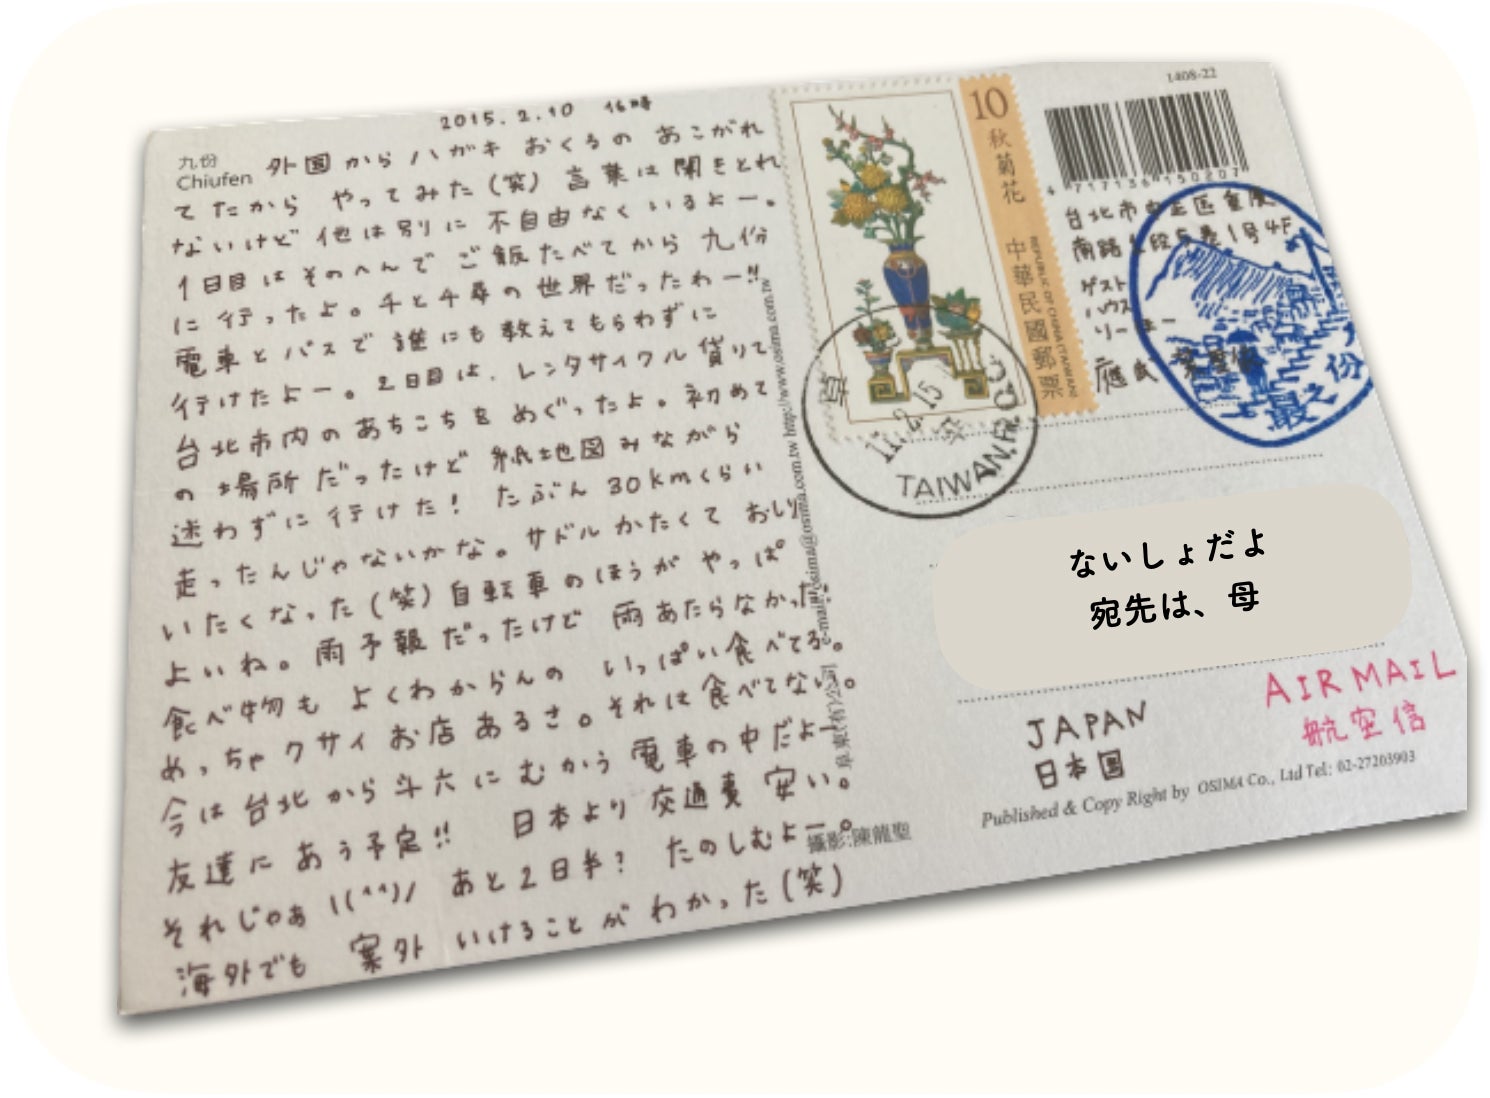 2015.2.10 16時
九份
Chiufen
外国からハガキ おくるの あこがれ
てたから やってみた(笑) 言葉は聞きとれ
ないけど 他は別に 不自由なくいるよー。
1日目は そのへんで ご飯たべてから 九份
に 行ったよ。千と千尋の世界だったわー!!
電車とバスで 誰にも 教えてもらわずに
行けたよー。2日目は、レンタサイクル 借りて
台北市内の あちこちを めぐったよ。初めて
の 場所だったけど 紙地図みながら
迷わずに 行けた! たぶん 30kmくらい
走ったんじゃないかな。サドルかたくて おしり
いたくなった(笑)自転車のほうが やっぱ
よいね。雨予報だったけど 雨あたらなかった。
食べ物も よくわからんの いっぱい食べてる。
めっちゃクサイお店あるさ。それは食べてない。
今は 台北から 斗六に むかう 電車の中だよー
友達に あう予定!! 日本より 交通費 安い。
それじゃあ \(^^)/ あと2日半? たのしむよー。
海外でも 案外 いけることが わかった(笑)
10
秋菊花
中華民國郵票
REPUBLIC OF CHINA (TAIWAN)
TAIWAN, R.O.C.
1408-22
4 717136 150207
台北市中正区重慶
南路1段5巷1号4F
ゲスト
ハウス
份
最之
e-mail:osima@osima.com.tw http://www.osima.com.tw
攝影:陳龍聖
ないしょだよ
宛先は、母
JAPAN
日本国
AIR MAIL
航空信
Published & Copy Right by OSIMA Co., Ltd Tel: 02-27203903